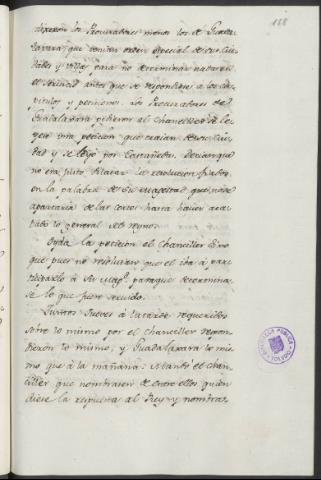 188
dixeron los Procuradores menos los de Guada
laxara, que tenian orden especial de sus Ciu
dades y villas para no determinar nada en
el servicio antes que se respondiese a los ca
pitulos y peticiones. Los Procuradores de
Guadalaxara pidieron al Chanciller se le
yese una peticion que traian de su Ciu
dad y se leyó por Castañeda. Decian que
no era justo dilatar la resolucion fiados
en la palabra de Su Magestad que no se
apartaria de las cortes hasta haver aca
bado lo general del reyno.
Oyda la peticion el Chanciller dixo
que pues no resolvieron que el iba a par
ticiparlo a Su Mag.d para que determina
se lo que fuere servido.
Juntos Jueves a la tarde requeridos
sobre lo mismo por el Chanciller respon
dieron lo mismo, y Guadalaxara lo mis
mo que à la mañana: Mandó el Chan
ciller que nombrasen de entre ellos quien
diese la respuesta al Rey y nombras
BIBLIOTECA PUBLICA
TOLEDO